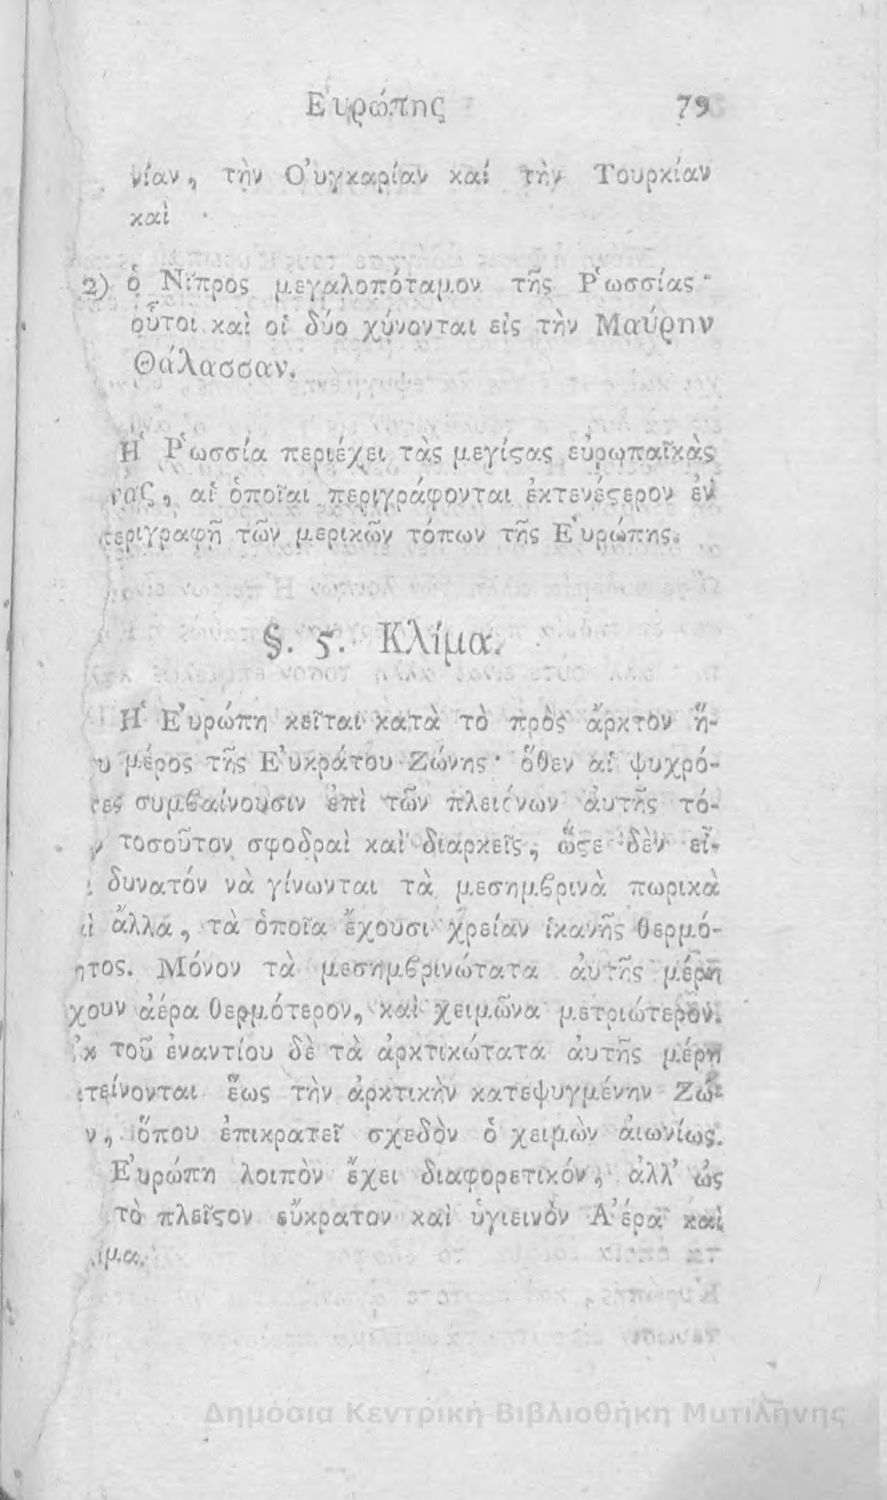 Εὐρώπης 79
νίαν, τὴν Οὐγκαρίαν καί τὴν Τουρκίαν
καὶ
2) ὁ Νῖπρος μεγαλοπόταμον τῆς Ῥωσσίας·
οὗτοι καὶ οἱ δύο χύνονται εἰς τὴν Μαύρην
Θάλασσαν.
Ἡ Ῥωσσία περιέχει τὰς μεγίϛας εὐρωπαϊκὰς
νας, αἱ ὁποῖαι περιγράφονται ἐκτενέϛερον ἐν
περιγραφῇ τῶν μερικῶν τόπων τῆς Εὐρώπης.
§. 5. Κλίμα.
Ἡ Εὐρώπη κεῖται κατὰ τὸ πρὸς ἄρκτον ἥ-
υ μέρος τῆς Εὐκράτου Ζώνης· ὅθεν αἱ ψυχρό-
τες συμβαίνουσιν ἐπὶ τῶν πλειόνων αὐτῆς τό-
ν τοσοῦτον σφοδραὶ καὶ διαρκεῖς, ὥϛε δὲν εἶ-
ι δυνατόν νὰ γίνωνται τὰ μεσημβρινὰ πωρικὰ
ὶ ἄλλα, τὰ ὁποῖα ἔχουσι χρείαν ἱκανῆς θερμό-
ητος. Μόνον τὰ μεσημβρινώτατα αὐτῆς μέρη
χουν ἀέρα θερμότερον, καὶ χειμῶνα μετριώτερον.
κ τοῦ ἐναντίου δὲ τὰ ἀρκτικώτατα αὐτῆς μέρη
κτείνονται ἕως τὴν ἀρκτικὴν κατεψυγμένην Ζώ-
ν, ὅπου ἐπικρατεῖ σχεδὸν ὁ χειμὼν αἰωνίως.
Εὐρώπη λοιπὸν ἔχει διαφορετικόν, ἀλλ' ὡς
τὸ πλεῖϛον εὔκρατον καὶ ὑγιεινὸν Ἀέρα καὶ
ίμα.
Δημόσια Κεντρική Βιβλιοθήκη Μυτιλήνης